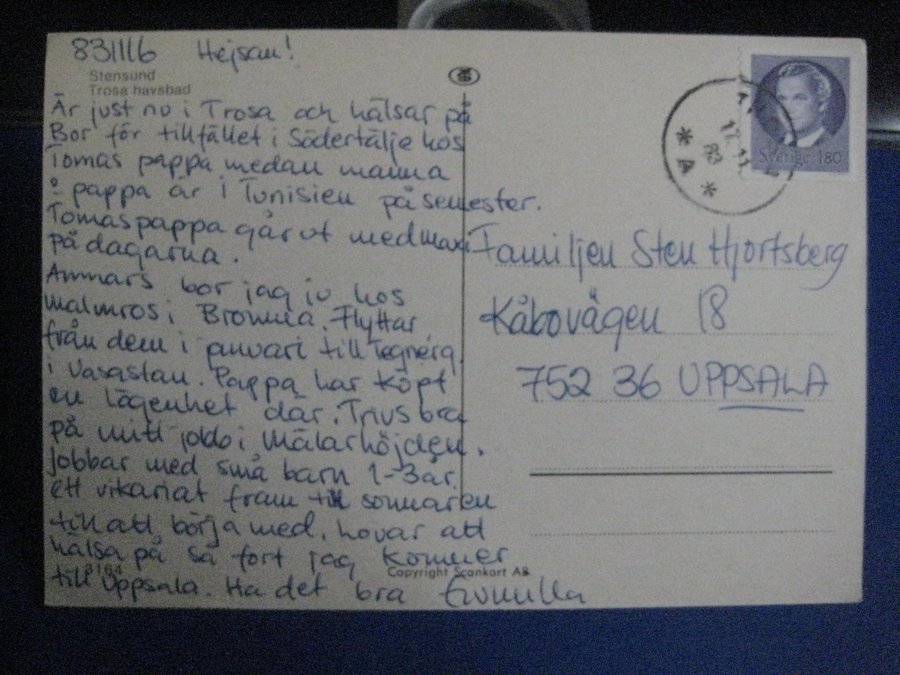 831116 Hejsan!
Stensund
Trosa havsbad
Är just nu i Trosa och hälsar på
Bor för tillfället i Södertälje hos
Tomas pappa medan mamma
o pappa är i Tunisien på semester.
Tomas pappa går ut med maxi
på dagarna.
Annars bor jag ju hos
malmros i Bromma. Flyttar
från dem i januari till Tegnérg.
i Vasastan. Pappa har köpt
en lägenhet där. Trivs bra
på mitt jobb i Mälarhöjden.
Jobbar med små barn 1-3 år.
ett vikariat fram till sommaren
till att börja med. Lovar att
hälsa på så fort jag kommer
till Uppsala. Ha det bra Gunilla
8164
Copyright Scankort AB
Sverige 180
17.11
83
* A *
Familjen Sten Hjortsberg
Kåbovägen 18
752 36 UPPSALA